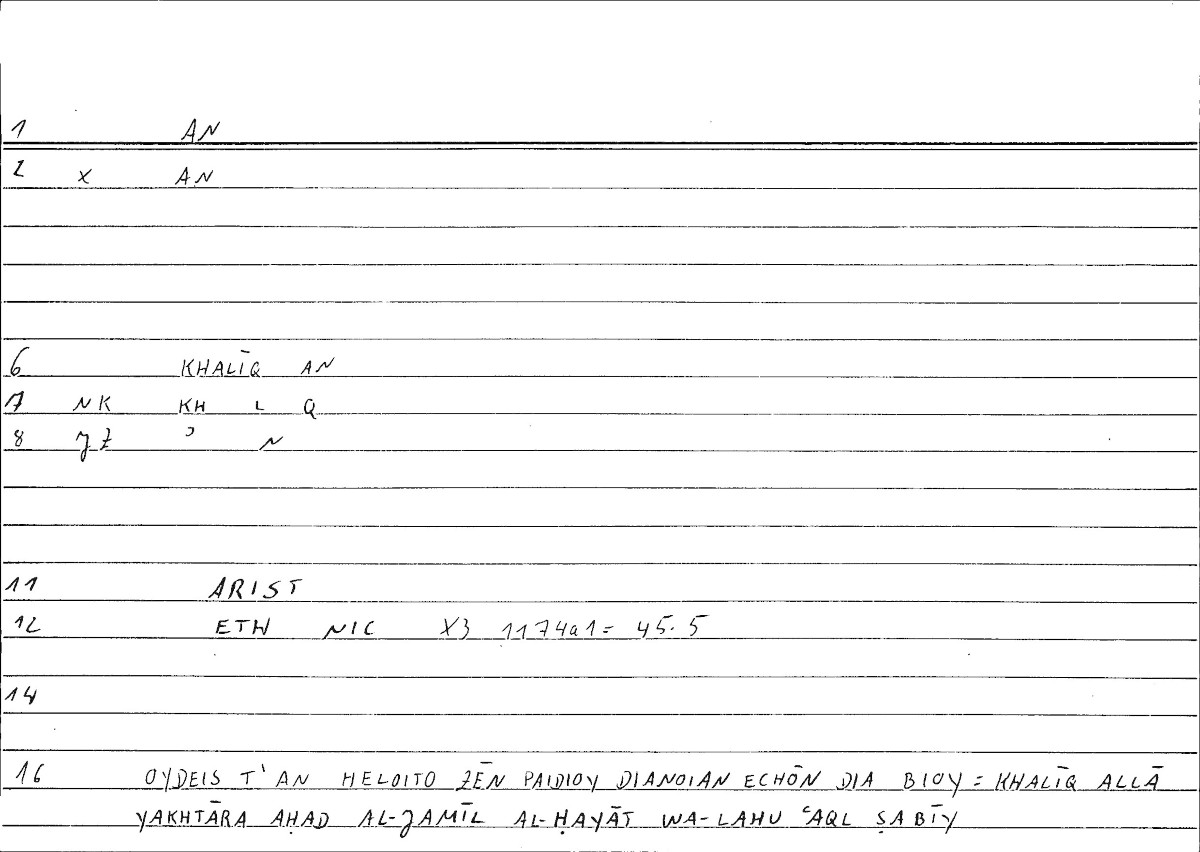 1 AN
2 X AN
6 KHALĪQ AN
7 NK KH L Q
8 ʾ N
11 ARIST
12 ETH NIC X3 1174a1= 45.5
14
16 OYDEIS T' AN HELOITO ZĒN PAIDIOY DIANOIAN ECHŌN DIA BIOY = KHALĪQ ALLĀ
YAKHTĀRA AḤAD AL-JAMĪL AL-ḤAYĀT WA-LAHU ʿAQL ṢABĪY